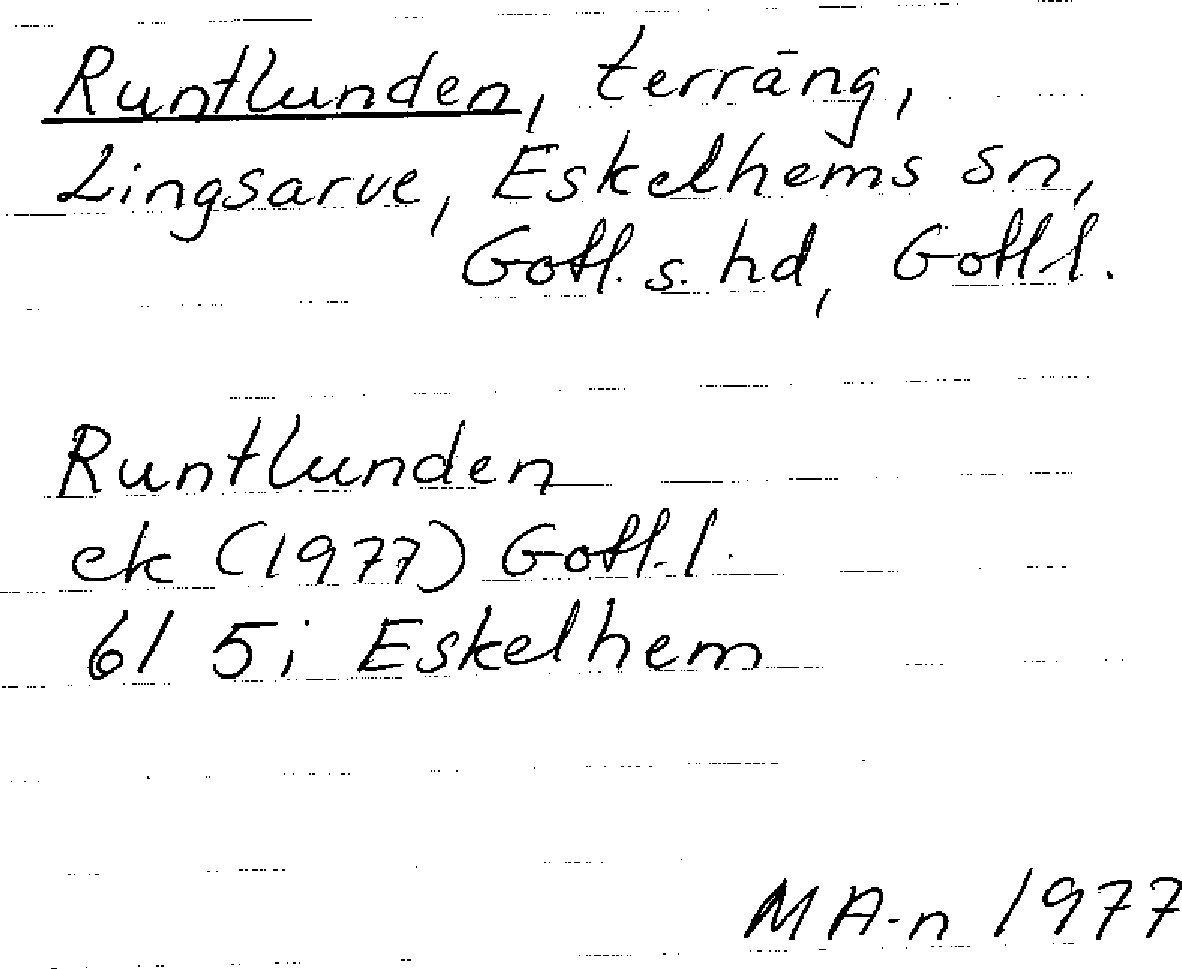 Runtlunden, terräng,
Lingsarve, Eskelhems sn,
Gotl. s. hd, Gotl.l.
Runtlunden
ek (1977) Gotl.l.
6I 5i Eskelhem
MA-n 1977